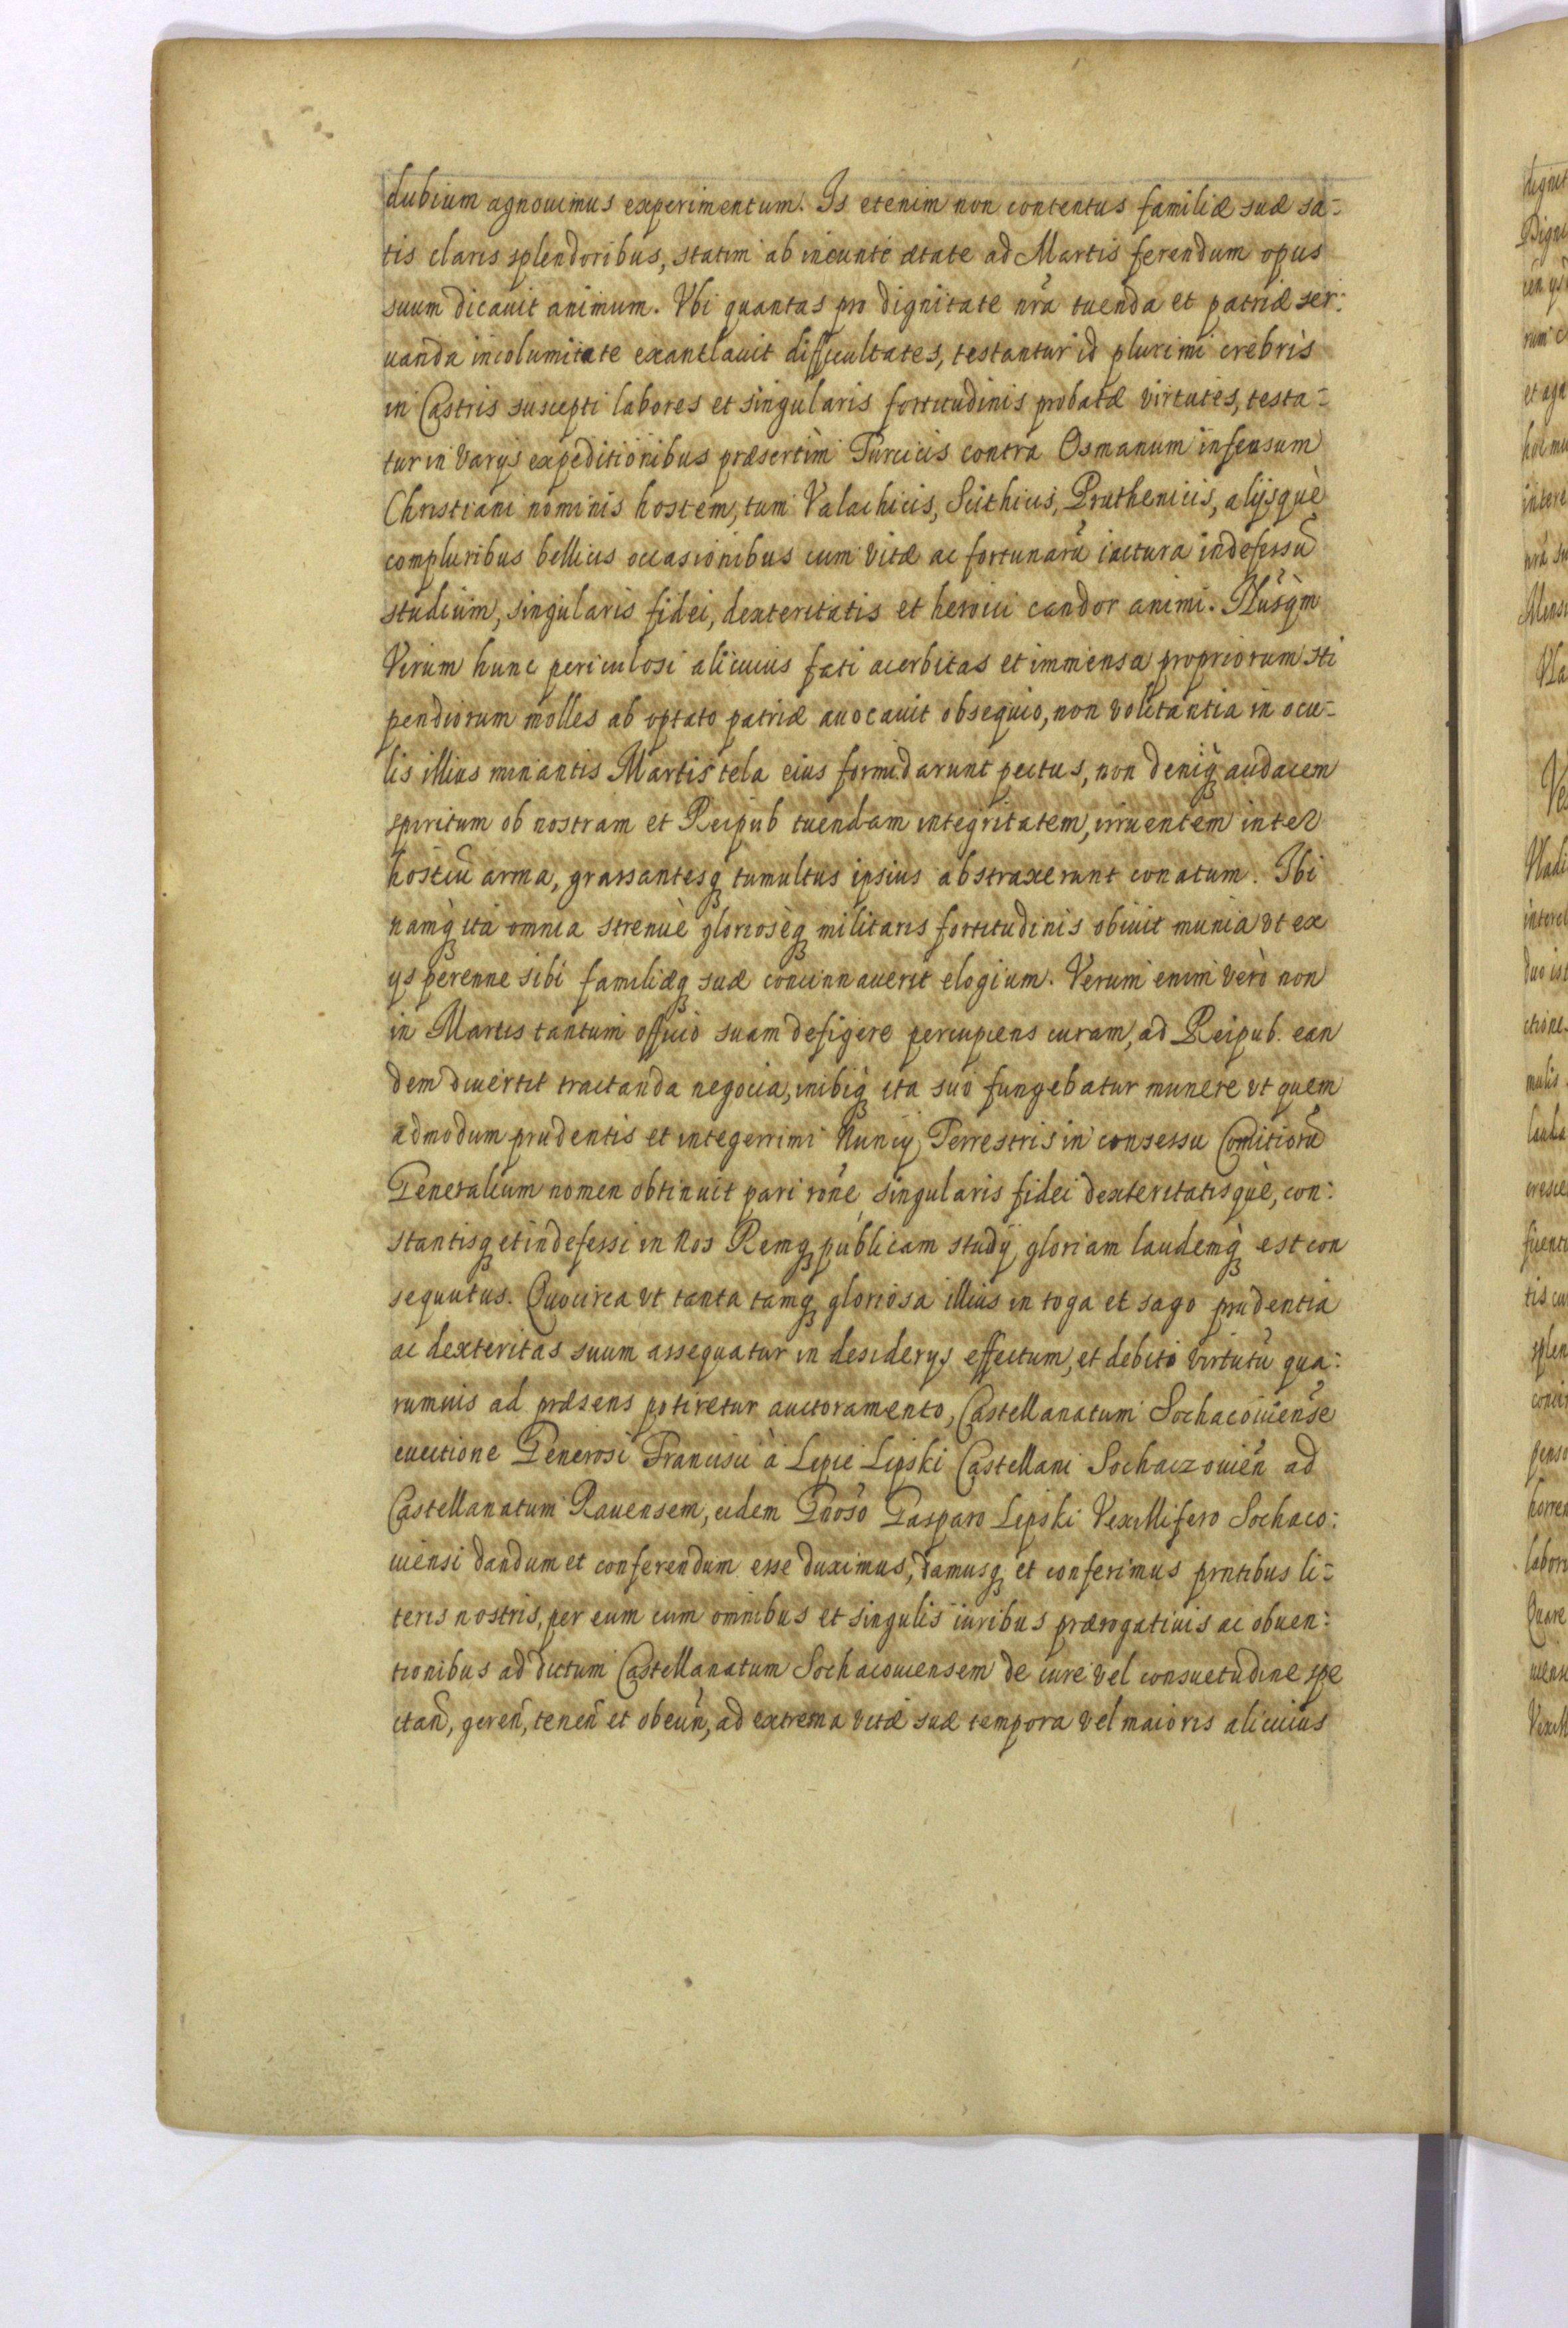 dubium agnouimus experimentum. Is etenim non contentus familiæ suæ sa-
tis claris splendoribus, statim ab ineunte ætate ad Martis ferendum opus
suum dicauit animum. Vbi quantas pro dignitate nr̃a tuenda et patriæ ser:
uanda incolumitate exantlauit difficultates, testantur id plurimi crebris
in Castris suscepti labores et singularis fortitudinis probatæ virtutes, testa-
tur in varys expeditionibus præsertim Turcicis contra Osmanum infensum
Christiani nominis hostem, tum Valachicis, Scithicis, Pruthenicis, alijsquè
compluribus bellicis occasionibus cum vitæ ac fortunarũ iactura indefessũ
studium, singularis fidei, dexteritatis et heroici candor animi. Nusq̃m
Virum hunc periculosi alicuius fati acerbitas et immensa propriorum sti
pendiorum molles ab optato patriæ auocauit obsequio, non volitantia in ocu-
lis illius minantis Martis tela eius formidarunt pectus, non deniq̀ audacem
spiritum ob nostram et Reipub tuendam integritatem, irruentem inter
hostiũ arma, grassantesq tumultus ipsius abstraxerunt conatum. Ibi
namq̀ ita omnia strenuè glorioseq̀ militaris fortitudinis obiuit munia vt ex
ys perenne sibi familiæq suæ concinnauerit elogium. Verum enim verò non
in Martis tantum officio suam defigere percupiens curam, ad Reipub. ean
dem diuertit tractanda negocia, inibiq̀ ita suo fungebatur munere vt quem
admodum prudentis et integerrimi Nuncij Terrestris in consessu Comitiorũ
Generalium nomen obtinuit pari rõne, singularis fidei dexteritatisquè, con:
stantisq et indefessi in Nos Remq publicam studij gloriam laudemq̀ est con
sequutus. Quocirca vt tanta tamq gloriosa illius in toga et sago prudentia
ac dexteritas suum assequatur in desiderys effectum, et debito virtutũ qua:
rumuis ad præsens potiretur auctoramento, Castellanatum Sochacouieñse
euectione Generosi Francisci à Lipie Lipski Castellani Sochaczouieñ ad
Castellanatum Rauensem, eidem Gnoso Gasparo Lipski Vexillifero Sochaco:
uiensi dandum et conferendum esse duximus, damusq et conferimus prntibus li-
teris nostris, per eum cum omnibus et singulis iuribus prærogatiuis ac obuen:
tionibus ad dictum Castellanatum Sochacouiensem de iure vel consuetudine spe
ctañ, gereñ, teneñ et obeuñ, ad extrema vitæ suæ tempora vel maioris alicuius